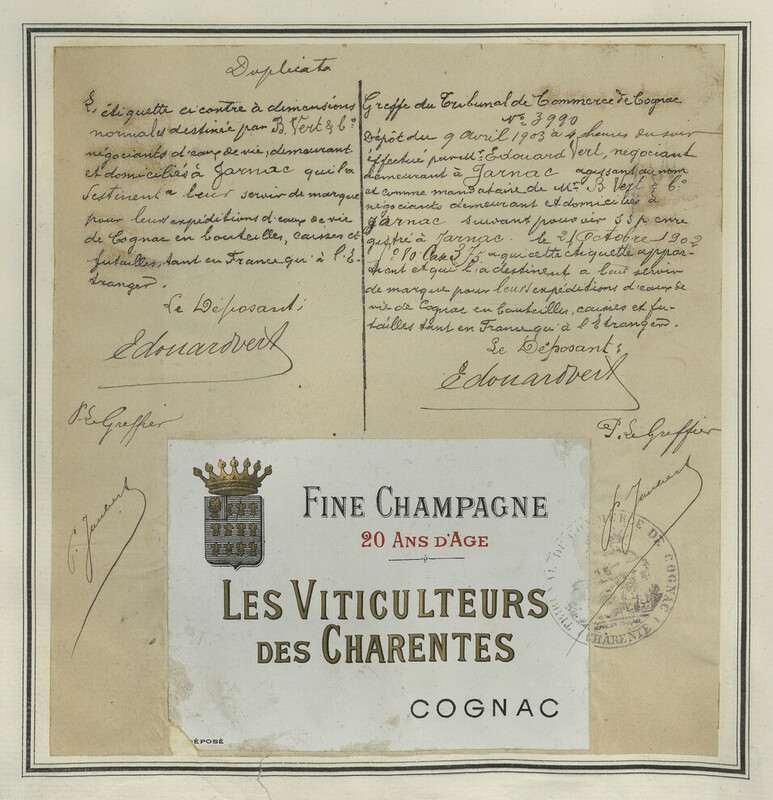 Duplicata
L'étiquette ci contre à dimensions
normales destinée par B. Vert & Cº
négociants d'eaux de vie, demeurant
et domiciliés à Jarnac qu'il a
destinent a leur servir de marque
pour leurs expéditions d'eaux de vie
de Cognac en bouteilles, caisses et
futailles, tant en France qu'à l'É-
tranger.
Le Déposant:
Edouard Vert
P. Le Greffier
Greffe du Tribunal de Commerce de Cognac
Nº 3990
Dépôt du 9 Avril 1903 à 4 heures du soir
effectué par Mr. Edouard Vert, négociant
demeurant à Jarnac agissant au nom
et comme mandataire de Mrs B. Vert & Cº
négociants demeurant et domiciliés à
Jarnac suivant pouvoir s.s.p. enre
gistré à Jarnac. le 21 Octobre 1902
fº 80 Case 375 a qui cette étiquette appar-
tient et qui l'a destinent a leur servir
de marque pour leurs expéditions d'eaux de
vie de Cognac en bouteilles, caisses et fu-
tailles tant en France qu'à l'Étranger.
Le Déposant:
Edouard Vert
P. Le Greffier
FINE CHAMPAGNE
20 ANS D'AGE
LES VITICULTEURS
DES CHARENTES
COGNAC
ÉPOSÉ
DE COGNAC
CHARENTE